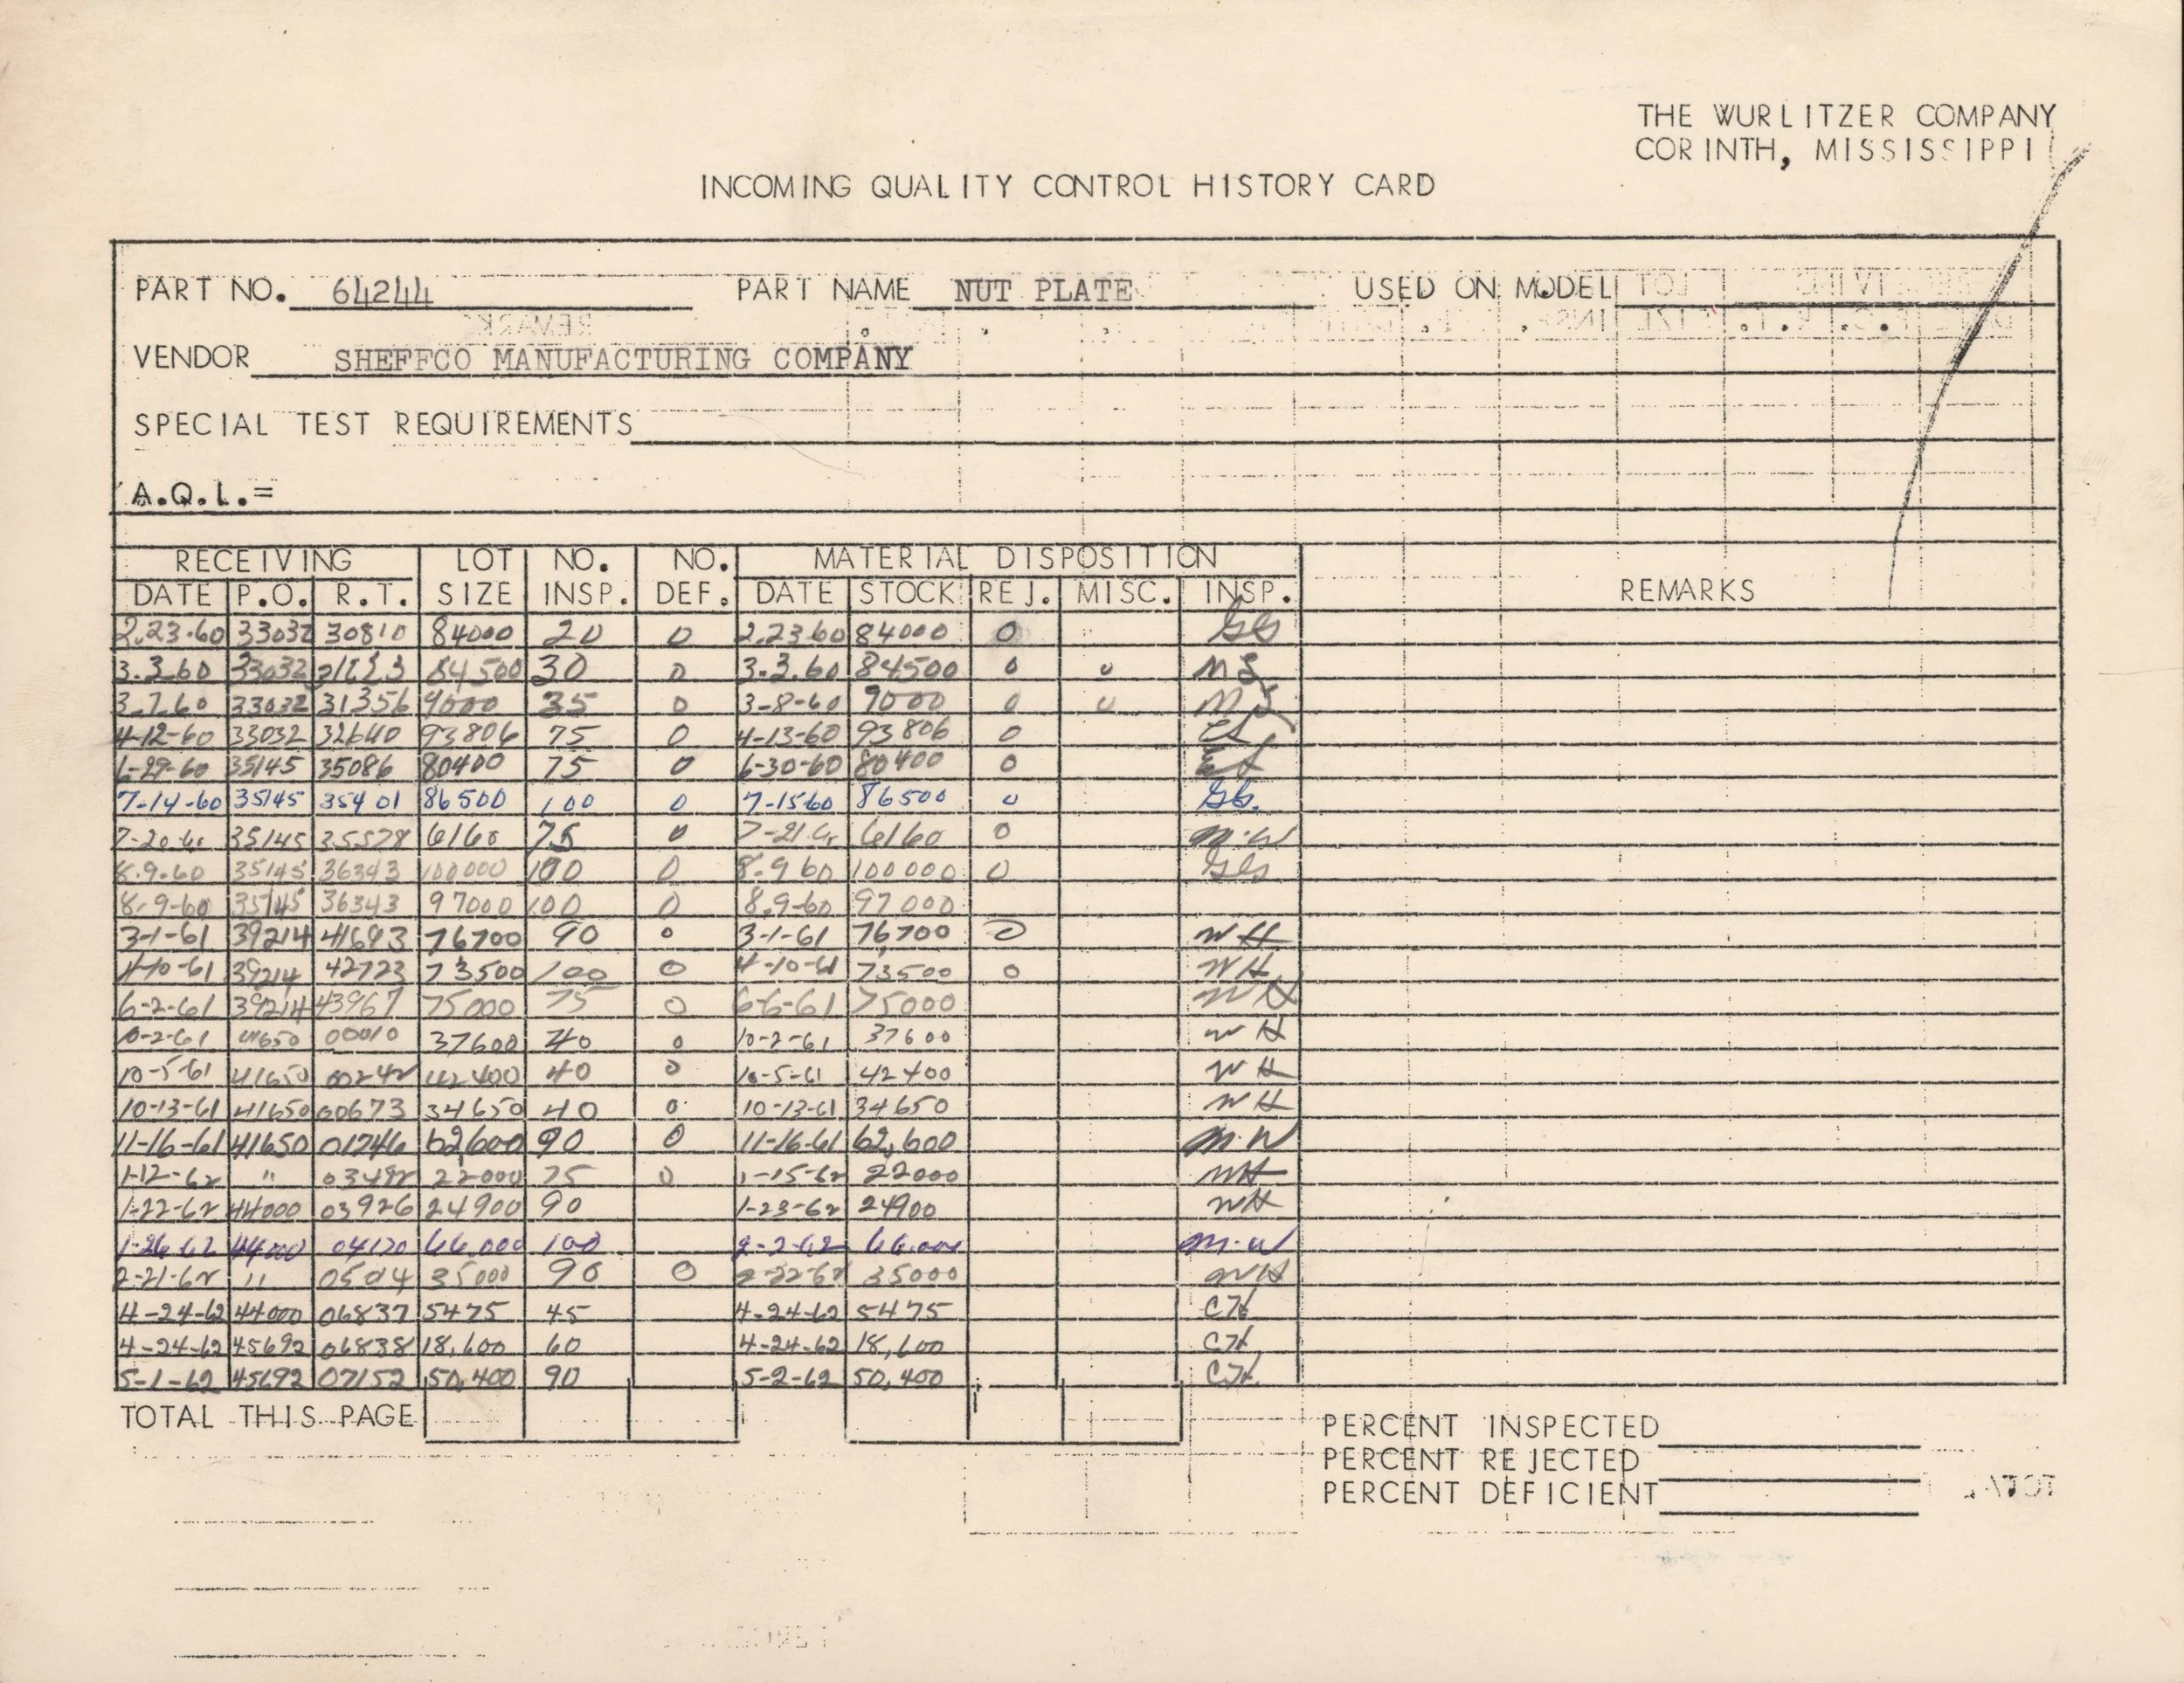 THE WURLITZER COMPANY
CORINTH, MISSISSIPPI
INCOMING QUALITY CONTROL HISTORY CARD
PART NO. 64244 PART NAME NUT PLATE USED ON MODEL
VENDOR SHEFFCO MANUFACTURING COMPANY
SPECIAL TEST REQUIREMENTS
A.Q.L.=
RECEIVING LOT NO. NO. MATERIAL DISPOSITION
DATE P.O. R.T. SIZE INSP. DEF. DATE STOCK REJ. MISC. INSP. REMARKS
2.23.60 33032 30810 84000 20 0 2.23.60 84000 0 GG
3.3.60 33032 84500 30 0 3.3.60 84500 0 0 MS
3.7.60 33032 31356 9000 35 0 3-8-60 9000 0 0 MS
4-12-60 33032 32640 93806 75 0 4-13-60 93806 0
6-29-60 35145 35086 80400 75 0 6-30-60 80400 0
7-14-60 35145 35401 86500 100 0 7-15-60 86500 0 GG.
7-20-61 35145 35578 6160 75 0 7-21-61 6160 0 M.W
8.9.60 35145 36343 100000 100 0 8.9 60 100000 0
8.9-60 35145 36343 97000 100 0 8.9-60 97000
3-1-61 39214 41693 76700 90 0 3-1-61 76,700 0 WH
4-10-61 39214 42723 73500 100 0 4-10-61 73500 0 WH
6-2-61 39214 43967 75000 75 0 6-6-61 75000 WH
10-2-61 41650 00010 37600 40 0 10-2-61 37600 WH
10-5-61 41650 00242 42400 40 0 10-5-61 42400 WH
10-13-61 41650 00673 34650 40 0 10-13-61 34650 WH
11-16-61 41650 01746 62,600 90 0 11-16-61 62,600 M.W
1-12-62 " 03492 22000 75 0 1-15-62 22000 WH
1-22-62 44000 03926 24900 90 1-23-62 24900 WH
1-26-62 44000 04120 66,000 100 2-2-62 66,000 M.W
2-21-62 " 0504 35000 90 0 2-22-62 35000 WH
4-24-62 44000 06837 5475 45 4-24-62 5475 CH
4-24-62 45692 06838 18,600 60 4-24-62 18,600 CH
5-1-62 45692 07152 50,400 90 5-2-62 50,400 CH
TOTAL THIS PAGE
PERCENT INSPECTED
PERCENT REJECTED
PERCENT DEFICIENT